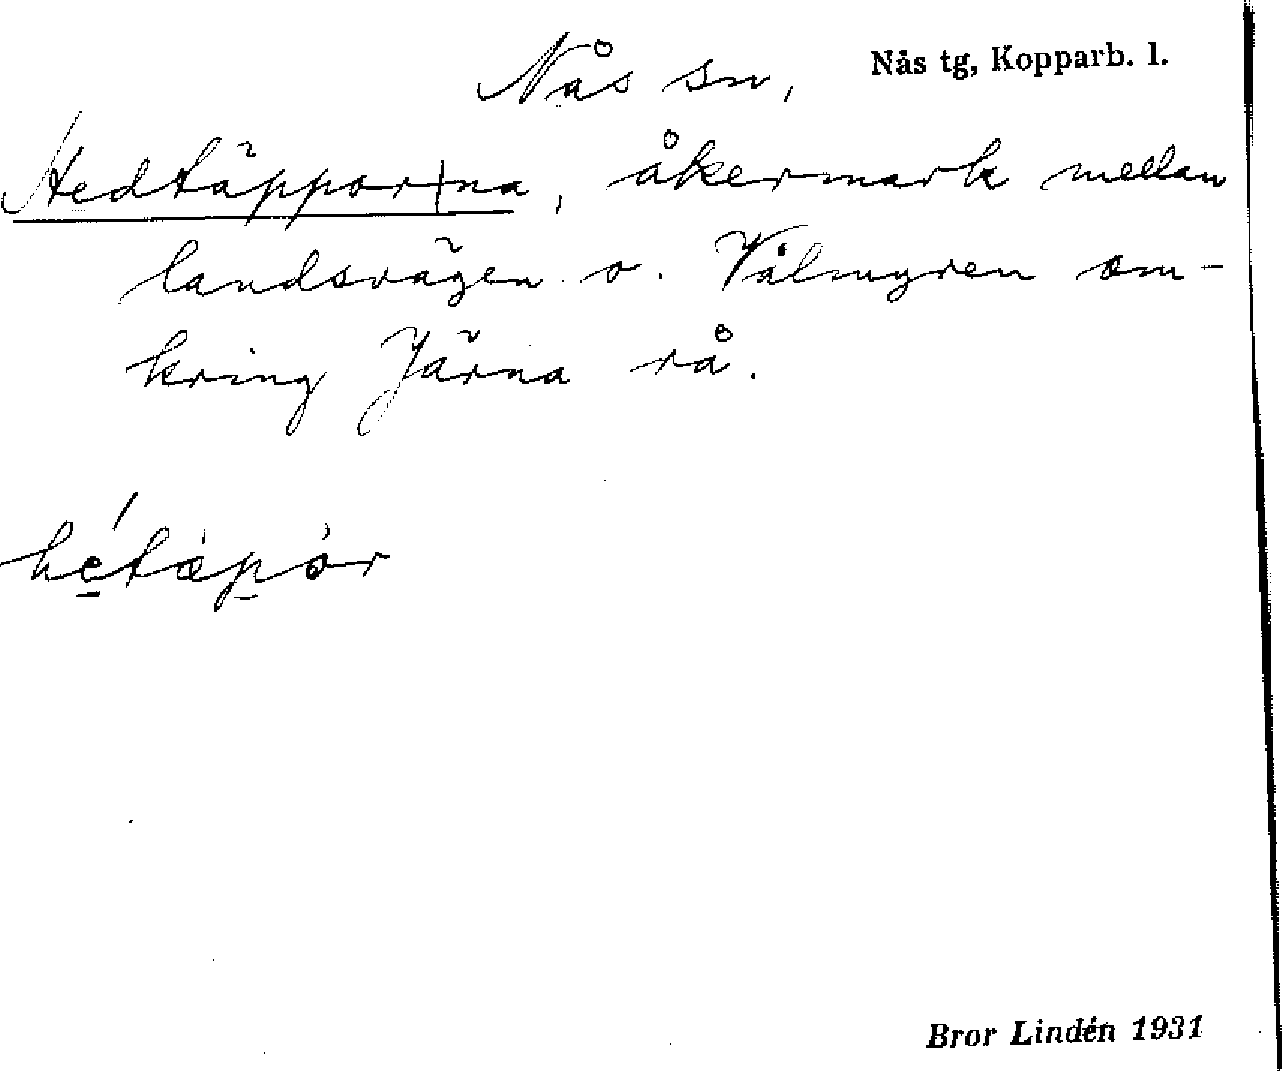 Nås sn, Nås tg, Kopparb. l.
Hedtäppor|na, åkermark mellan
landsvägen o. Vålmyren om-
kring Järna rå.
hétäpòr
Bror Lindén 1931